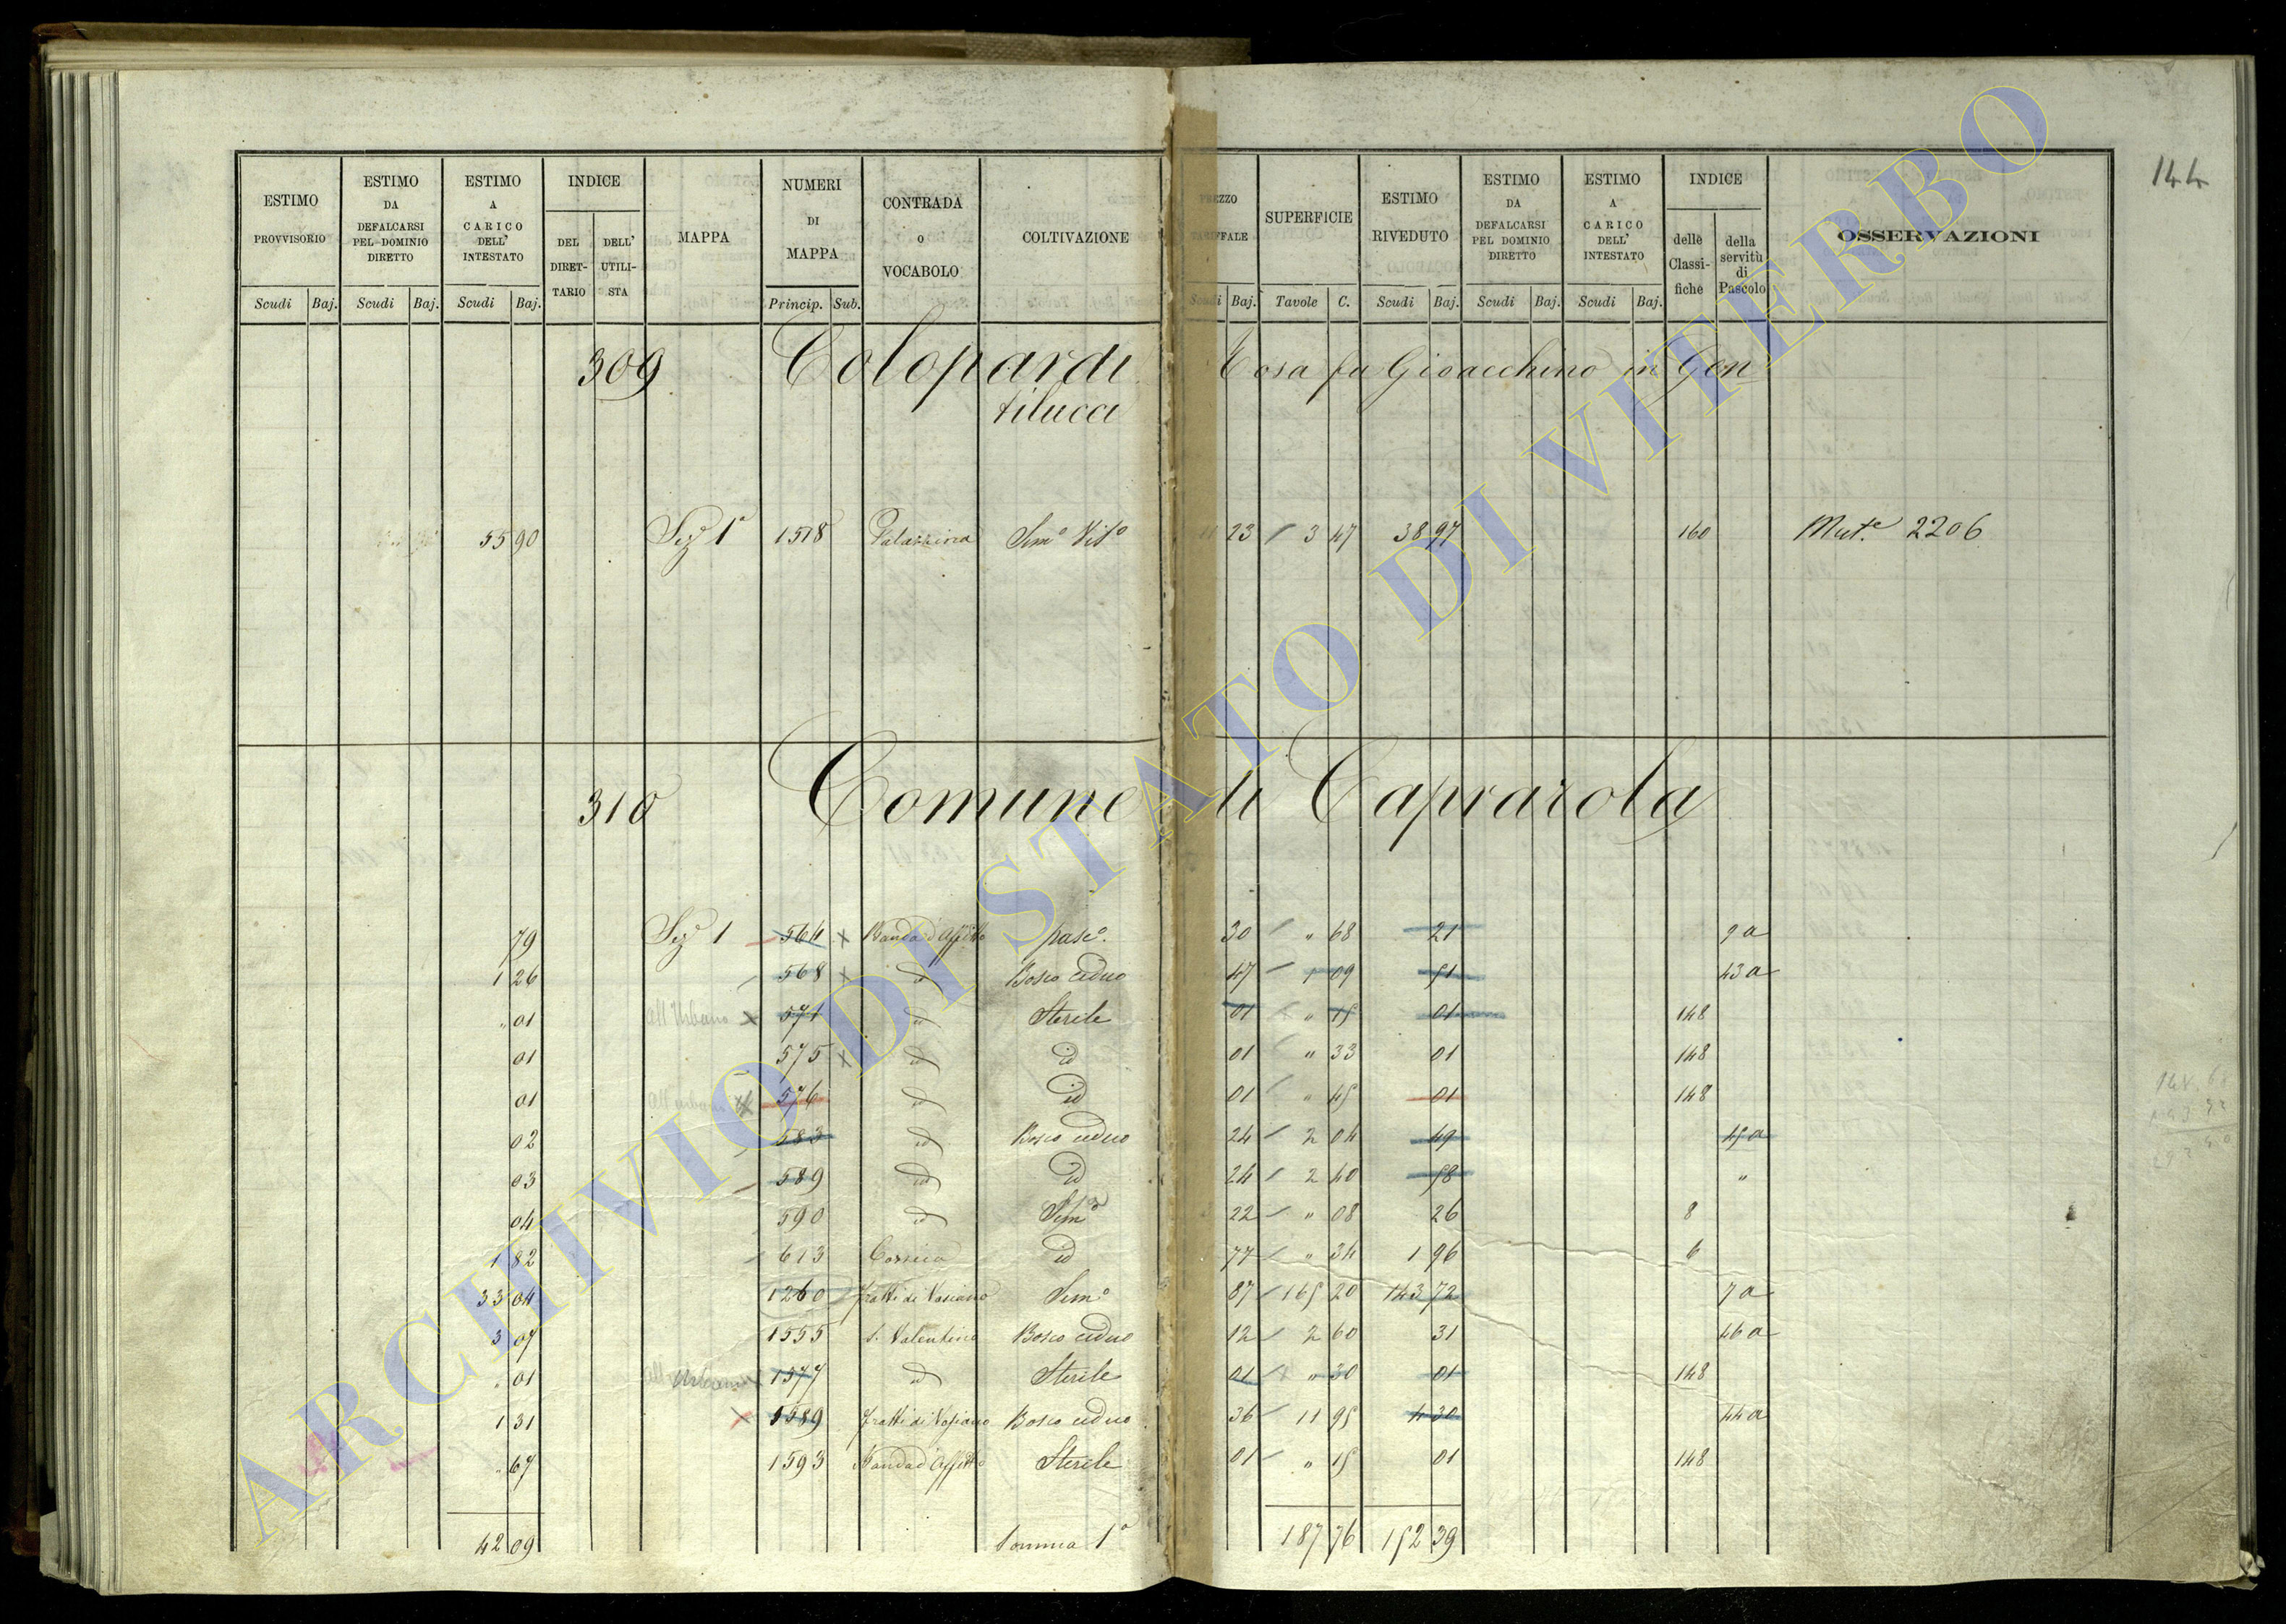 144
ESTIMO PROVVISORIO
ESTIMO DA DEFALCARSI PEL DOMINIO DIRETTO
ESTIMO A CARICO DELL' INTESTATO
INDICE
DEL DIRET-TARIO
DELL' UTILI-STA
MAPPA
NUMERI DI MAPPA
CONTRADA o VOCABOLO
COLTIVAZIONE
PREZZO TARIFFALE
SUPERFICIE
ESTIMO RIVEDUTO
ESTIMO DA DEFALCARSI PEL DOMINIO DIRETTO
ESTIMO A CARICO DELL' INTESTATO
INDICE
delle Classi-fiche
della servitù di Pascolo
OSSERVAZIONI
Scudi Baj. Scudi Baj. Scudi Baj. Princip. Sub. Scudi Baj. Tavole C. Scudi Baj. Scudi Baj. Scudi Baj.
309 Colopardi Rosa fu Gioacchino in Gen
tilucci
55 90 Sez 1ª 1518 Palazzina Sem° Vit° 11 23 3 47 38 97 160 Mut.e 2206
310 Comune di Caprarola
79 Sez 1 564 x Banda d'Affitto pasc°. 30 " 68 21 9a
1 26 568 x id Bosco ceduo 47 1 09 51 43a
" 01 all'Urbano x 574 id Sterile 01 " 15 01 148
01 575 x id id 01 " 33 01 148
01 all'urbano x 576 id id 01 " 45 01 148
02 583 id Bosco ceduo 24 2 04 49 45a
03 589 id id 24 2 40 58 "
04 590 id Sem° 22 " 08 26 8
1 82 613 id 77 " 34 1 96 6
33 04 1260 Fratti di Vasiano Sem° 87 165 20 143 72 7a
3 07 1555 S. Valentino Bosco ceduo 12 2 60 31 46a
" 01 all'Urbano x 1577 id Sterile 01 " 30 01 148
1 31 x 1589 Fratti di Vasiano Bosco ceduo 36 11 95 4 30 44a
" 67 1593 Banda d'Affitto Sterile 01 " 15 01 148
42 09 Somma 1ª 187 76 152 39
ARCHIVIO DI STATO DI VITERBO